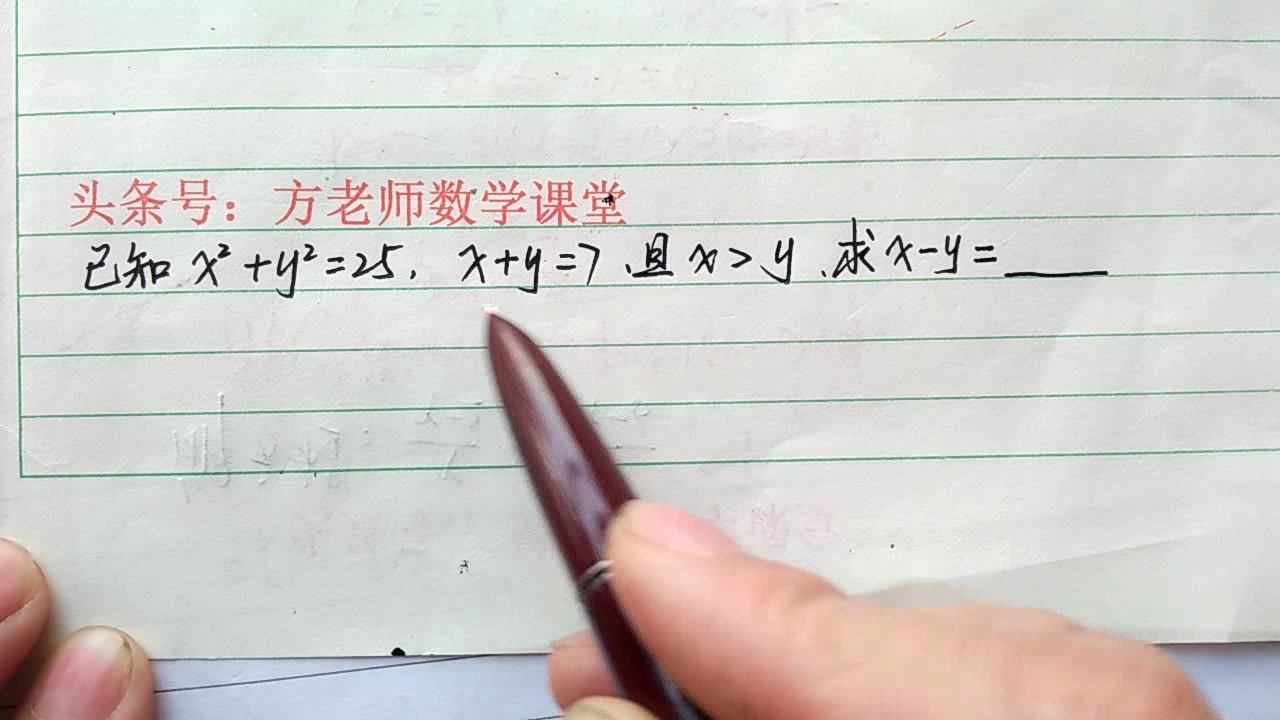 头条号：方老师数学课堂
已知 x²+y²=25, x+y=7、且 x>y、求 x-y=____